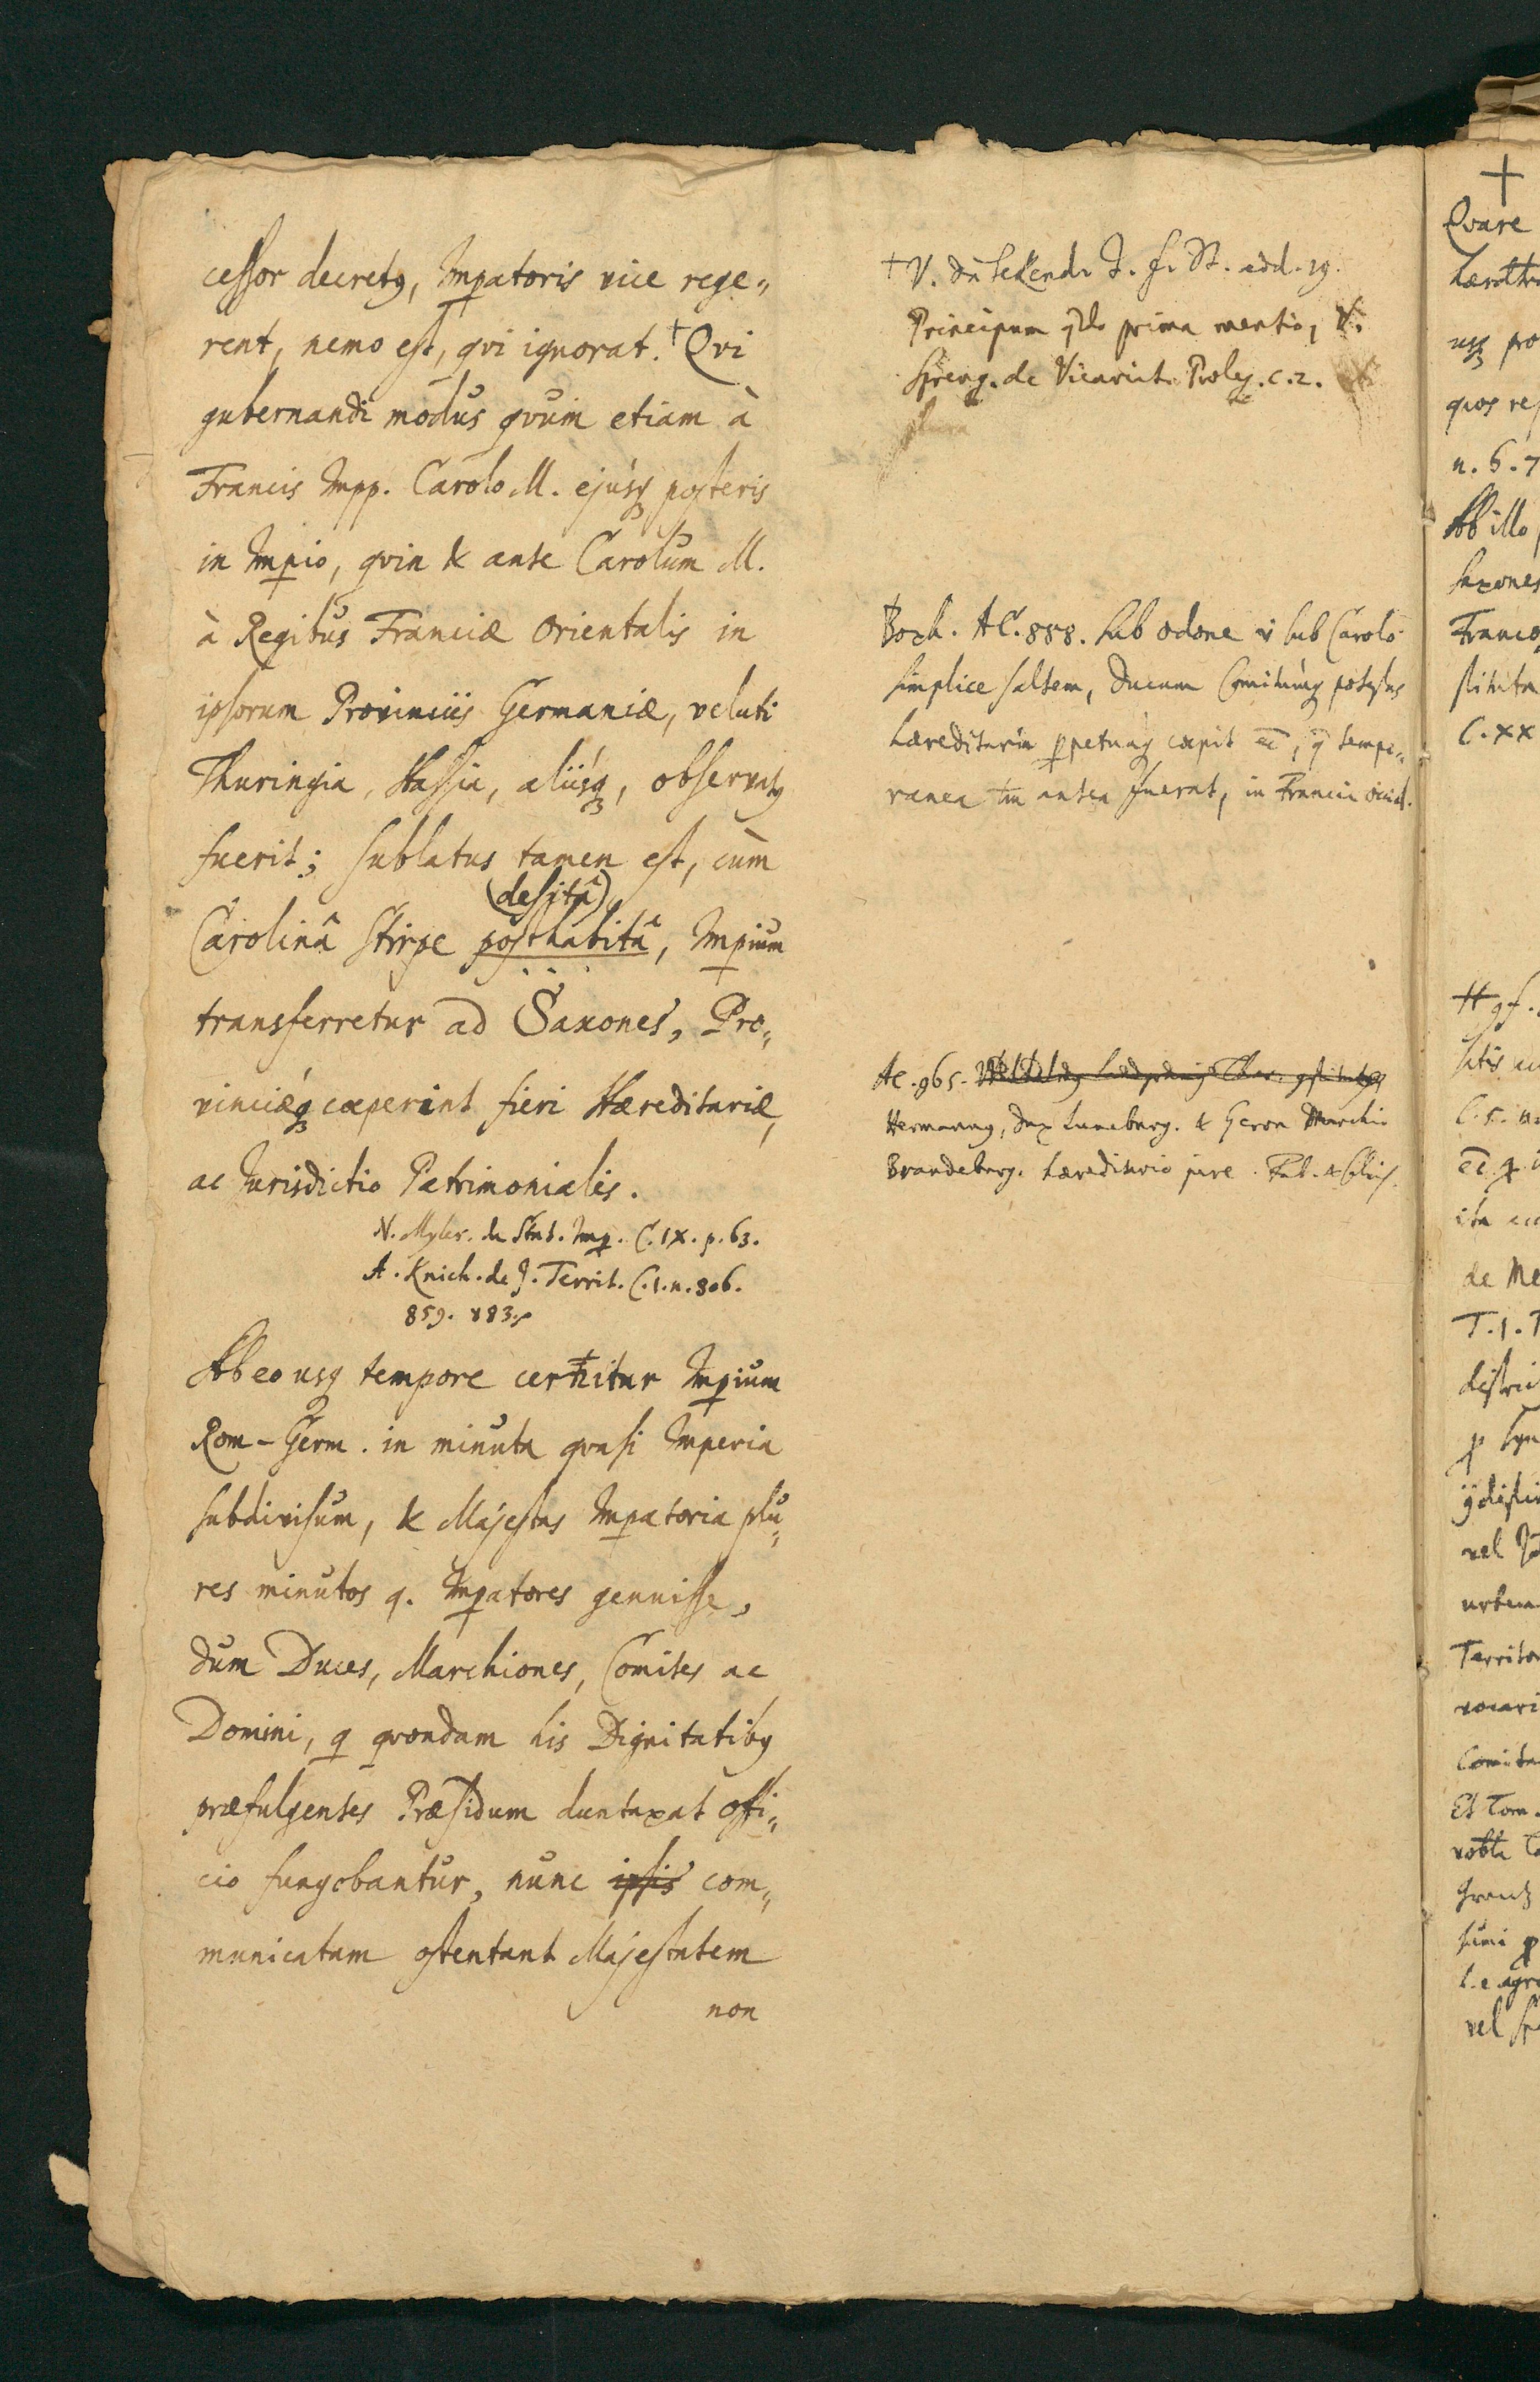 cessor decretꝰ, Imꝑatoris vice rege„
rent, nemo est, qvi ignorat.† Qvi
gubernandi modus qvum etiam à
Francis Impp. Carolo M. ejúsqꝫ posteris
in Imꝑio, qvin & ante Carolum M.
à Regibus Franciæ Orientalis in
ipsorum Provinciis Germaniæ, veluti
Thuringia, Hassia, aliísqꝫ, observatꝰ
fuerit; sublatus tamen est, cùm
(desitâ)
Carolinâ Stirpe posthabitâ, Imꝑium
transferretur ad Saxones, Pro„
vinciǽqꝫ cœperint fieri Hæreditariæ,
ac Iurisdictio Patrimonialis.
N. Myler. de Stat. Imꝑ. C. IX. p. 63.
A. Knich. de J. Territ. C. 1. n. 806.
859. 883.
Ab eo usqꝫ tempore cernitur Imꝑium
Rom-Germ. in minuta qvasi Imperia
subdivisum, & Majestas Imꝑatoria plu„
res minutos q. Imꝑatores genuisse,
dum Duces, Marchiones, Comites ac
Domini, q qvondam his Dignitatibꝰ
præfulgentes Præsidum duntaxat offi„
cio fungebantur, nunc ipsis com„
municatam ostentant Majestatem
non
† V. Dn Sekend. T. F. St. add. 19.
Principum prima mentio, V.
Spreng. de Vicariat. Proleg. c. 2.
Boxh. AC. 888. sub Odone & sub Carolo
simplice saltem, Ducum Comitúmqꝫ potestas
hæreditaria ꝑpetuáqꝫ cœpit, tempo„
ranea antea fuerat, in Francia Occid.
AC. 965.
Hermannꝰ, Dux Luneburg. & Geron Marchio
Brandeburg. hæreditario jure.
†
Qvare
usqꝫ pro
qvos re
n. 6. 7
Ab illo
Saxones
stituta
C. XX
satis
C. 5. n.
ita
de Me
T. 1.
vel
urbem
Territo
vocari
Comita
Et Tom.
vel